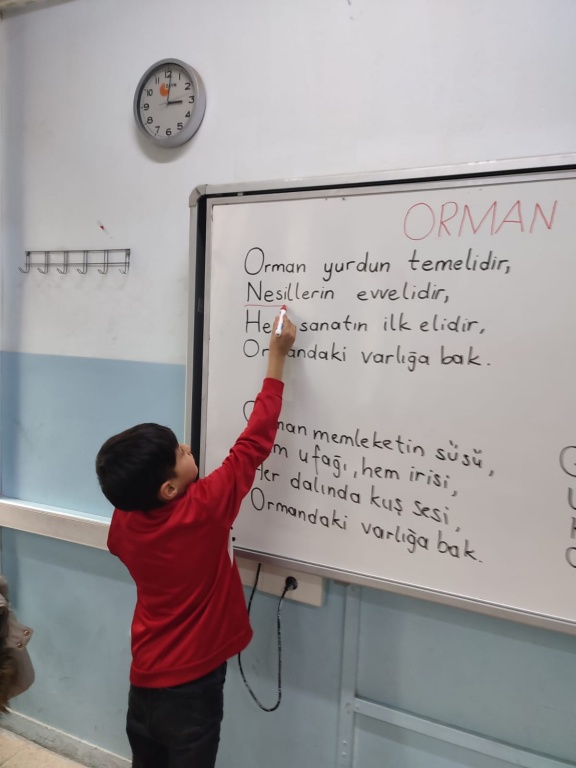 ORMAN
Orman yurdun temelidir,
Nesillerin evvelidir,
Her sanatın ilk elidir,
Ormandaki varlığa bak.
Orman memleketin süsü,
ufağı, hem irisi,
Her dalında kuş sesi,
Ormandaki varlığa bak.
11 12 1 2 3 4 5 6 7 8 9 10